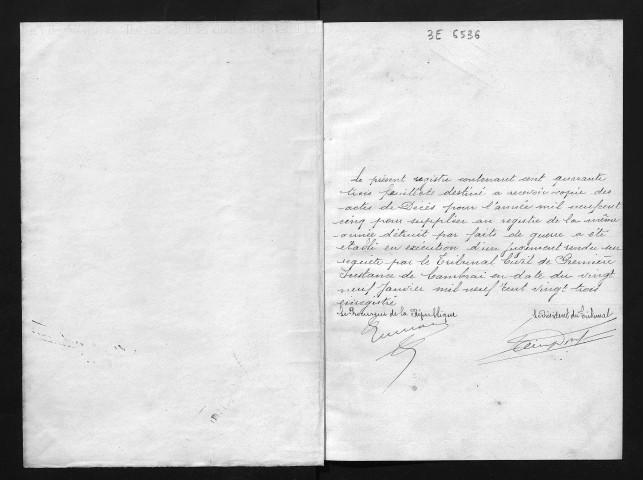 3E 6536
Le présent registre contenant cent quarante
trois feuillets destiné a recevoir copie des
actes de Décès pour l'année mil neuf cent
cinq pour suppléer au registre de la même
année détruit par faits de guerre a été
établi en exécution d'un jugement rendu sur
requête par le Tribunal Civil de Première
Instance de Cambrai en date du vingt
neuf Janvier mil neuf cent vingt trois
enregistré
Le Procureur de la République
Le Président du Tribunal